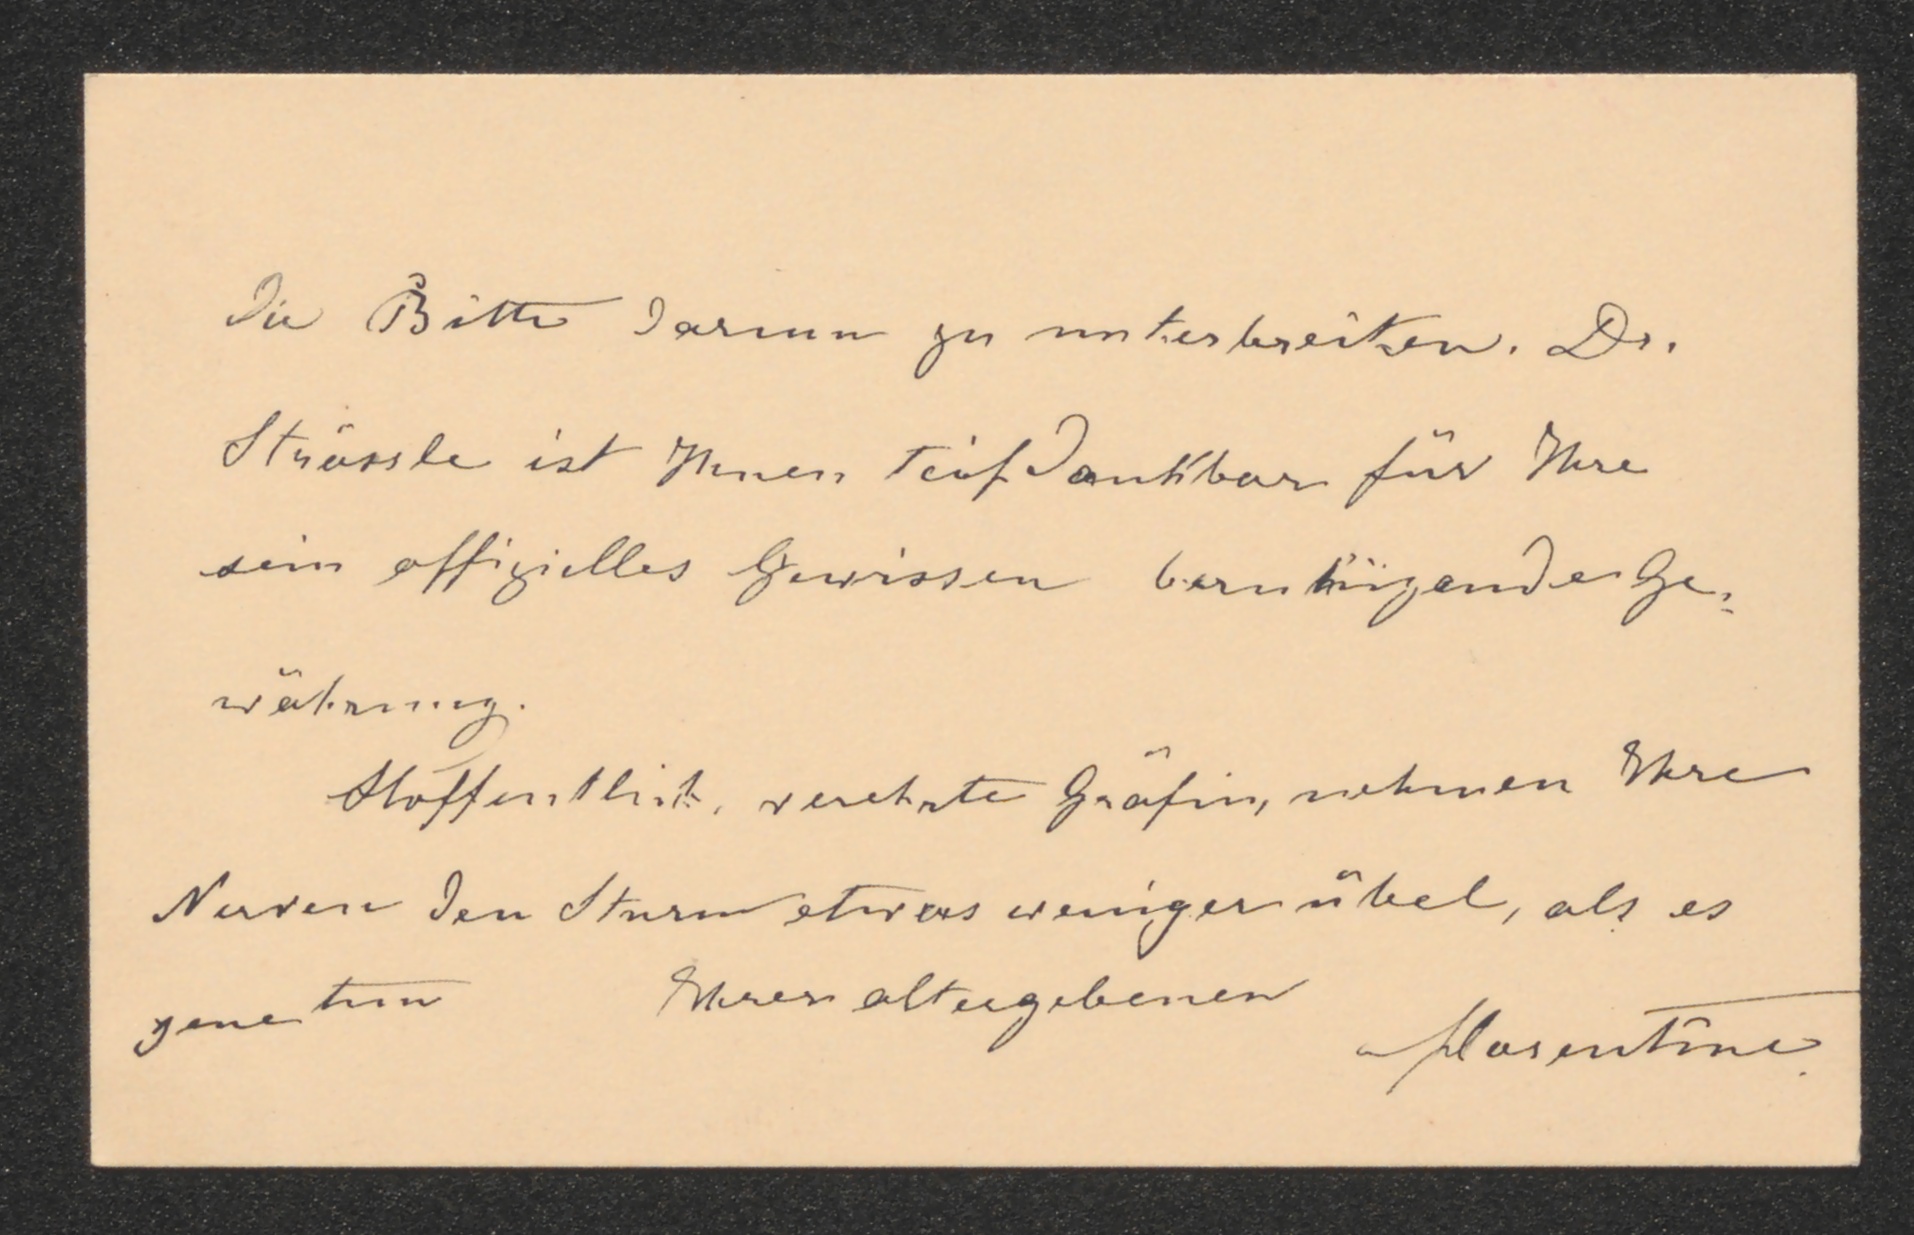 die Bitte darum zu unterbreiten. Dr.
Strössle ist Ihnen tief dankbar für Ihre
sein offizielles Gewissen beruhigende Ge-
währung.
Hoffentlich, verehrte Gräfin, nehmen Ihre
Nerven den Sturm etwas weniger übel, als es
jene tun Ihrer altergebenen
Florentine.